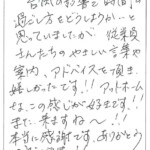 台風の影響で時間の
過ごし方をどうしようか…と
思っていましたが、従業員
さんたちのやさしい言葉や
案内、アドバイスを頂き、
嬉しかったです!!アットホーム
なこの感じが好きです!!
また、来ますね〜!!
本当に感謝です。ありがとう